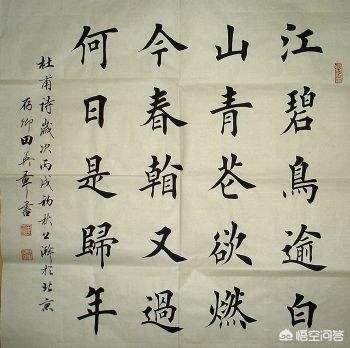 江碧鳥逾白
山青花欲燃
今春看又過
何日是歸年
杜甫詩歲次丙戌初秋上澣於北京
存卿田英章書
悟空问答